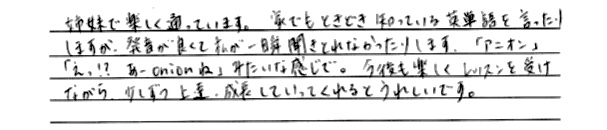 姉妹で楽しく通っています。家でもときどき知っている英単語を言ったり
しますが、発音が良くて私が一瞬聞きとれなかったりします。「アニオン」
「えっ!? あーonionね」みたいな感じで。今後も楽しくレッスンを受け
ながら、少しずつ上達・成長していってくれるとうれしいです。